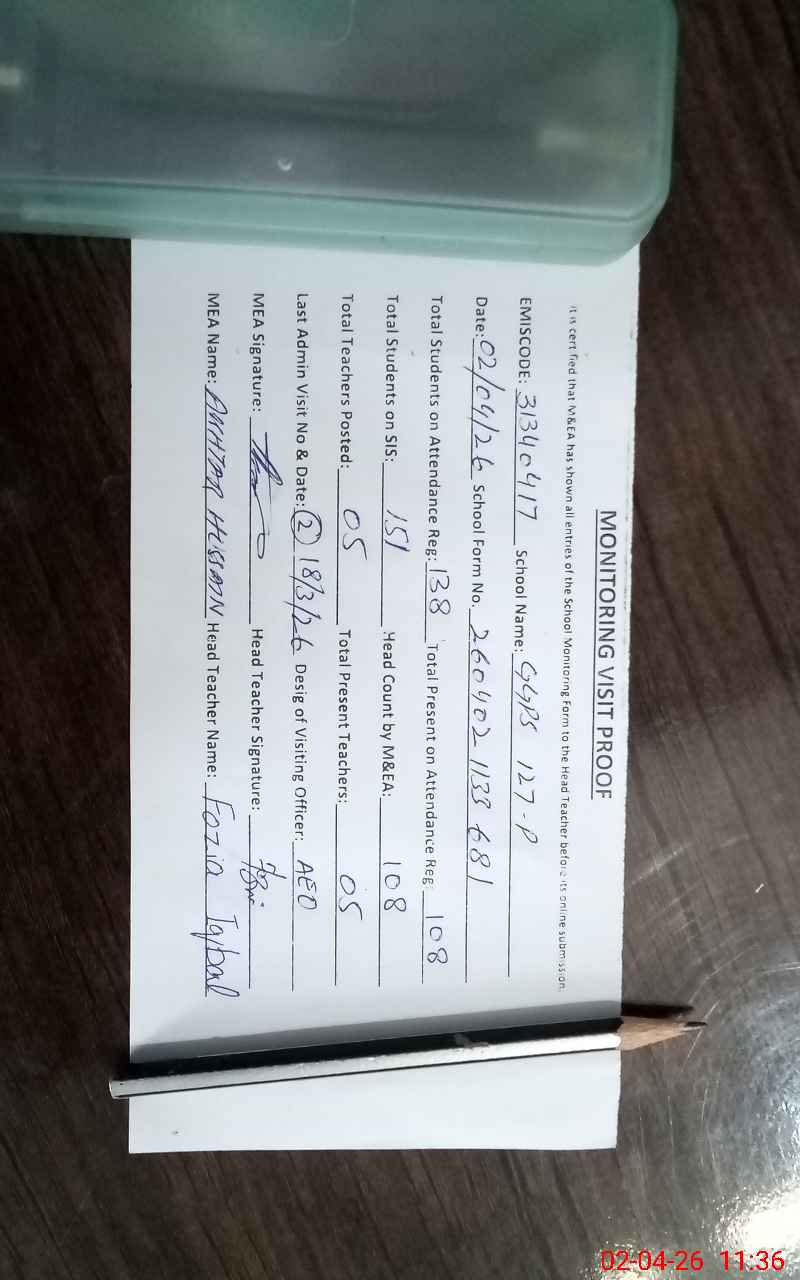 MONITORING VISIT PROOF
It is certified that M&EA has shown all entries of the School Monitoring Form to the Head Teacher before its online submission.
EMISCODE: 31340417 School Name: GGPS 127-P
Date: 02/04/26 School Form No. 2604021133681
Total Students on Attendance Reg: 138 Total Present on Attendance Reg: 108
Total Students on SIS: 151 Head Count by M&EA: 108
Total Teachers Posted: 05 Total Present Teachers: 05
Last Admin Visit No & Date: (2) 18/3/26 Desig of Visiting Officer: AEO
MEA Signature: Head Teacher Signature:
MEA Name: AKHTAR HUSSAIN Head Teacher Name: Fozia Iqbal
02-04-26 11:36